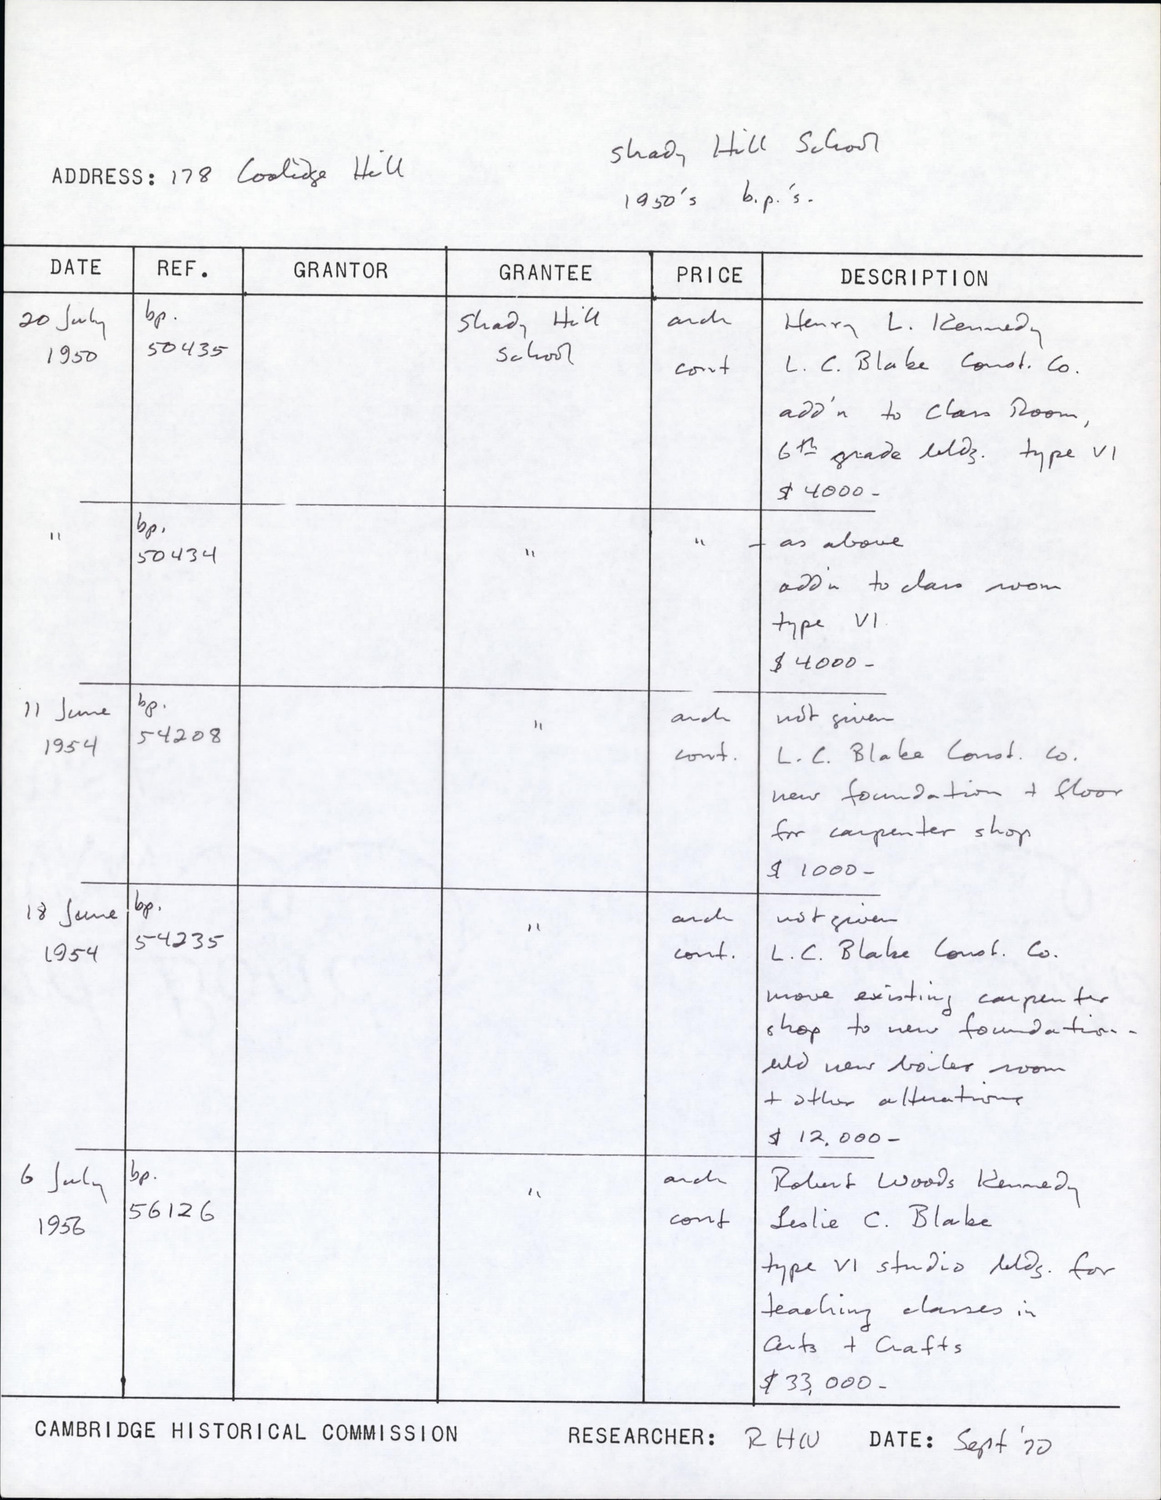 Shady Hill School
ADDRESS: 178 Coolidge Hill
1950's b.p.'s.
DATE REF. GRANTOR GRANTEE PRICE DESCRIPTION
20 July bp. Shady Hill arch Henry L. Kennedy
1950 50435 School cont L. C. Blake Const. Co.
add'n to Class Room,
6th grade bldg. type VI
$ 4000-
" bp. " " - as above
50434
add'n to class room
type VI
$ 4000-
11 June bp. " arch not given
1954 54208 cont. L. C. Blake Const. Co.
new foundation + floor
for carpenter shop
$ 1000-
18 June bp. " arch not given
1954 54235 cont. L. C. Blake Const. Co.
move existing carpenter
shop to new foundation--
bld new boiler room
+ other alterations
$ 12,000-
6 July bp. " arch Robert Woods Kennedy
1956 56126 cont Leslie C. Blake
type VI studio bldg. for
teaching classes in
Arts + Crafts
$ 33,000-
CAMBRIDGE HISTORICAL COMMISSION RESEARCHER: RHN DATE: Sept '70